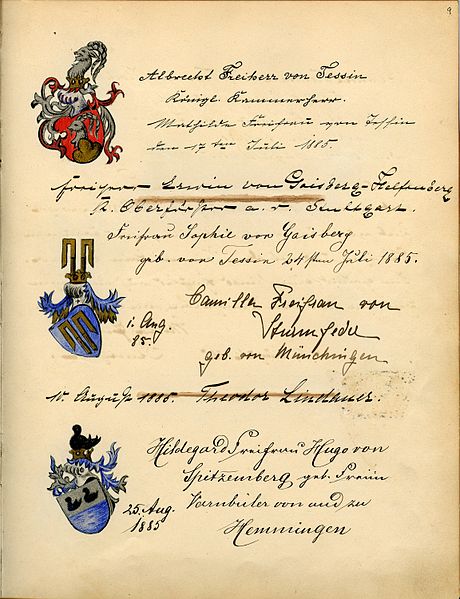 9
Albrecht Freiherr von Tessin
Königl. Kammerherr.
Mathilde Freifrau von Tessin
den 17ten Juli 1885.
Freiherr Erwin von Gaisberg-Helfenberg
K. Oberförster a. D. Stuttgart.
Freifrau Sophie von Gaisberg
geb. von Tessin 24sten Juli 1885.
Camilla Freifrau von
Sturmfeder
geb. von Münchingen
1. Aug.
85.
10. August 1885. Theodor Lindauer.
Hildegard Freifrau Hugo von
Spitzemberg geb. Freiin
Varnbüler von und zu
Hemmingen
25. Aug.
1885